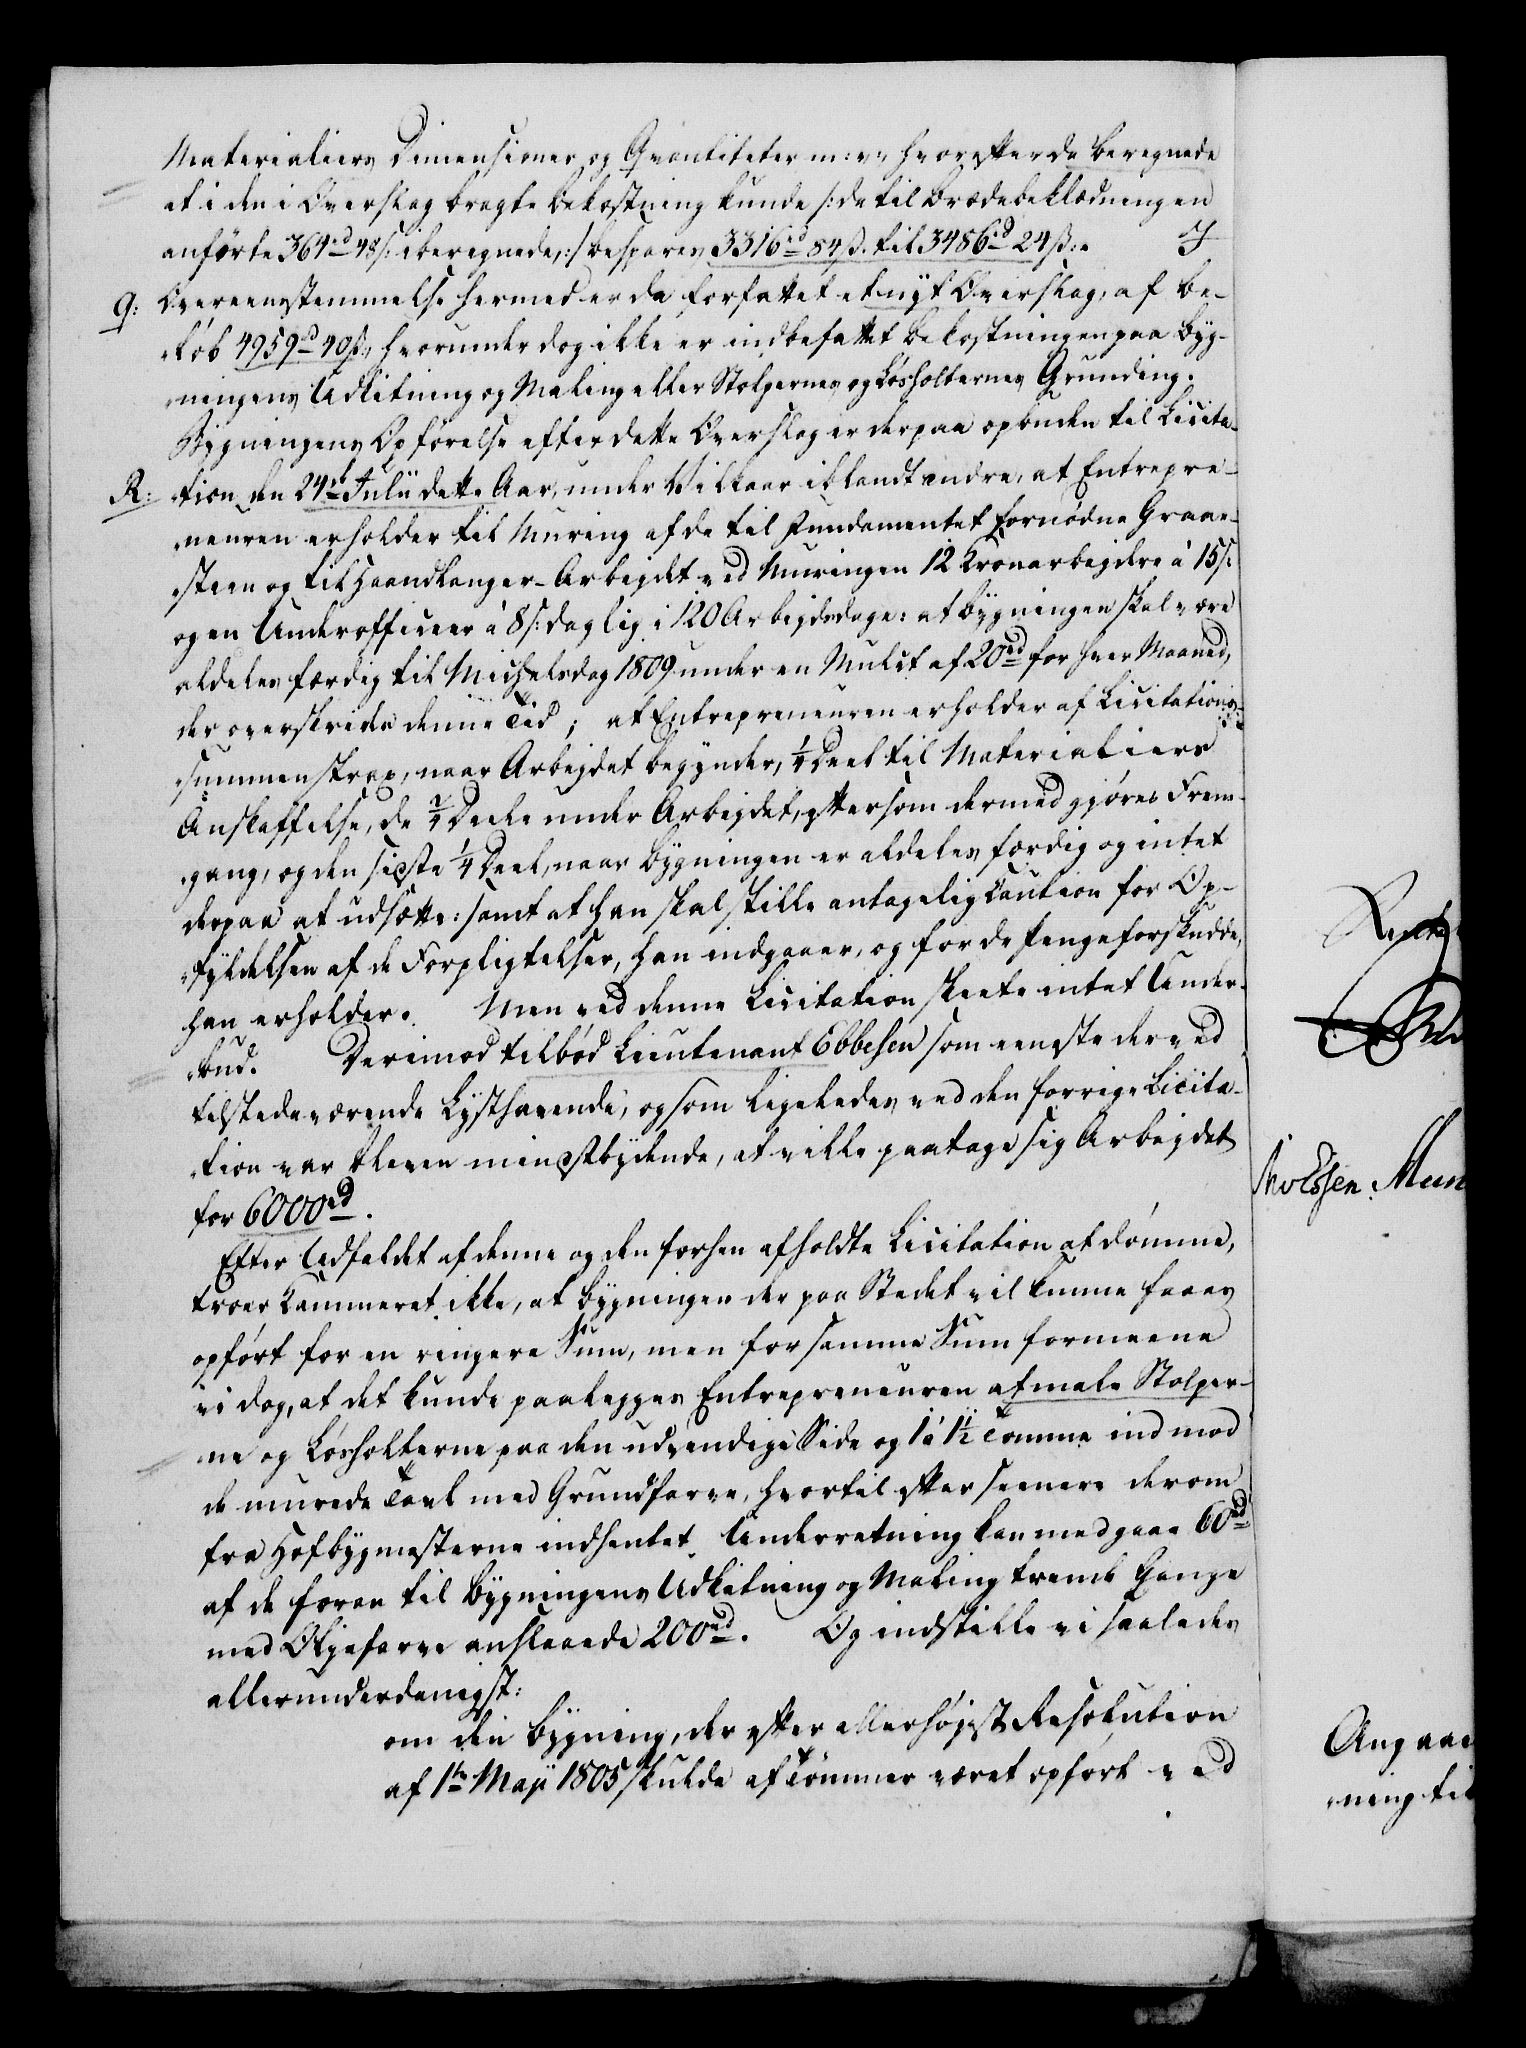 Materialiers Dimensioner og Qvantiteter m: v:, hvorefter de beregnede
at i den i Overslag bragte Bekostning kunde /: de til Brædebeklædningen
anførte 364rd 48/: iberegnede, :/ bespares 3316rd 84ß. til 3486rd 24ß:. I
Q: Overeensstemmelse hermed er da forfattet et nyt Overslag, af Be-
-løb 4959rd 40ß, hvorunder dog ikke er indbefattet Bekostningen paa Byg-
-ningens Udkitning og Maling eller Stolpernes og Løsholternes Grunding.
Bygningens Opførelse efter dette Overslag er derpaa opbuden til Licita-
R: -tion den 24de Julii dette Aar, under Vilkaar iblandt andre, at Entrepre-
-neuren erholder til Muring af de til Fundamentet fornødne Graae-
-steen og til Haandlanger-Arbejdet ved Muringen 12 Kronarbejdere à 15/:
og en Underofficeer à 8/: daglig i 120 Arbejdsdage: at Bygningen skal være
aldeles færdig til Michelsdag 1809 under en Mulct af 20rd for hver Maaned,
der overskrides denne Tid; at Entrepreneuren erholder af Licitations-
-summen strax, naar Arbejdet begynder, 1/4 Deel til Materialiers
Anskaffelse, de 2/4 Deele under Arbejdet, eftersom dermed gjøres Frem-
-gang, og den sidste 1/4 Deel, naar Bygningen er aldeles færdig og intet
derpaa at udsætte: samt at han skal stille antagelig Caution for Op-
-fyldelsen af de Forpligtelser, han indgaaer, og for de Pengeforskudde,
han erholder. Men ved denne Licitation skeete intet Under-
-bud. Derimod tilbød Lieutenant Ebbesen som eeneste derved
tilstedeværende Lysthavende, og som ligeledes ved den forrige Licita-
-tion var bleven mindstbydende, at ville paatage sig Arbejdet
for 6000rd.
Efter Udfaldet af denne og den forhen afholdte Licitation at dømme,
troer Kammeret ikke, at Bygningen der paa Stedet vil kunne faaes
opført for en ringere Sum, men for samme Sum formeene
vi dog, at det kunde paalegges Entrepreneuren at male Stolper-
-ne og Løsholterne paa den udvendige Side og 1 à 1½ Tomme ind mod
de murede Tavl med Grundfarve, hvortil efter seenere derom
fra Hofbygmesterne indhentet Underretning kan medgaae 60rd
af de foran til Bygningens Udkitning og Maling trende Gange
med Oljefarve anslaaede 200rd. Og indstille vi saaledes
allerunderdanigst:
om den Bygning, der efter allerhøjest Resolution
af 1te Maji 1805 skulde af Tømmer været opført ved
Angaae
-ning til